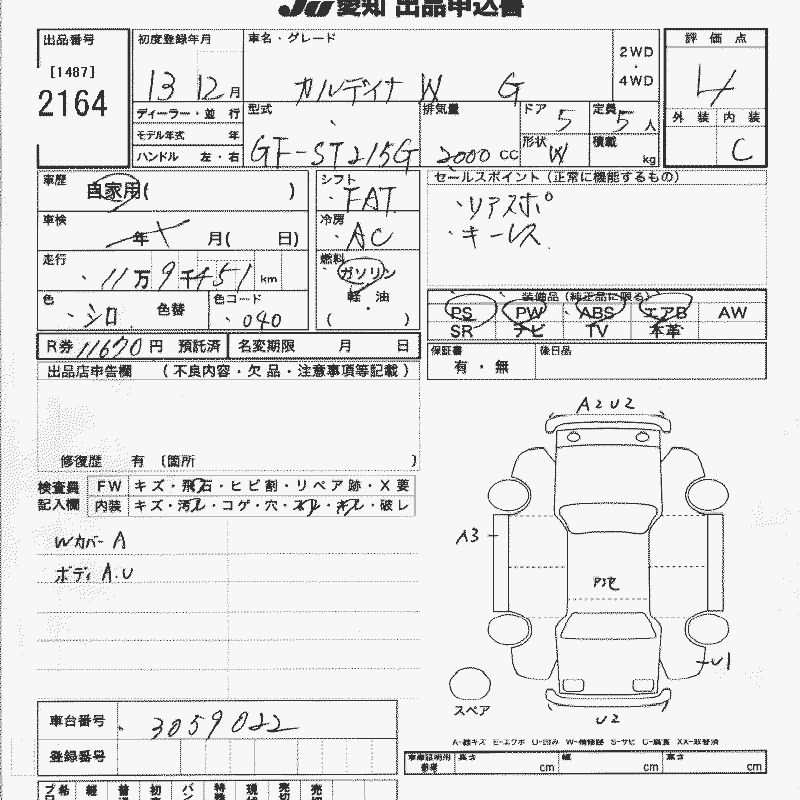 JU 愛知 出品申込書
出品番号
[1487]
2164
初度登録年月
13 12 月
ディーラー・並行
モデル年式 年
ハンドル 左・右
車名・グレード
カルディナ W G
2WD
・
4WD
型式
GF-ST215G
排気量
2000 CC
ドア 5
定員 5 人
形状 W
積載 kg
評価点
4
外装 内装
C
車歴
自家用( )
車検
年 月( 日)
走行
11万9千451 km
色
シロ 色替
色コード
040
シフト
FAT
冷房
AC
燃料
ガソリン
軽・油
( )
セールスポイント(正常に機能するもの)
・リアスポ
・キーレス
装備品(純正品に限る)
PS PW ABS エアB AW
SR ナビ TV 本革
R券 11670 円 預託済 名変期限 月 日
保証書
有・無
後日品
出品店申告欄 (不良内容・欠品・注意事項等記載)
修復歴 有 〔箇所 〕
検査員
記入欄
FW キズ・飛石・ヒビ割・リペア跡・X要
内装 キズ・汚レ・コゲ・穴・スレ・キレ・破レ
Wカバー A
ボディ A.U
A2 U2
A3
U1
スペア
U2
A-線キズ E-エクボ U-凹み W-補修跡 S-サビ C-腐食 XX-取替済
車台番号
3059022
登録番号
車庫証明用
参考
長さ cm 幅 cm 高さ cm